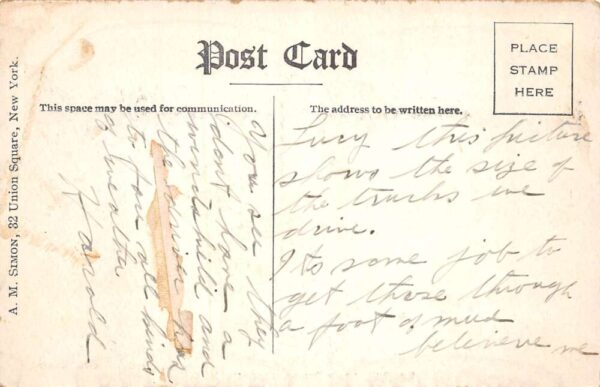 Post Card
PLACE
STAMP
HERE
This space may be used for communication.
The address to be written here.
A. M. SIMON, 32 Union Square, New York.
Lucy this picture
shows the size of
the trucks we
drive.
Its some job to
get those through
a foot of mud
believe me
You see they
dont have a
and
the driver has
to you all kinds
of weather
Harold